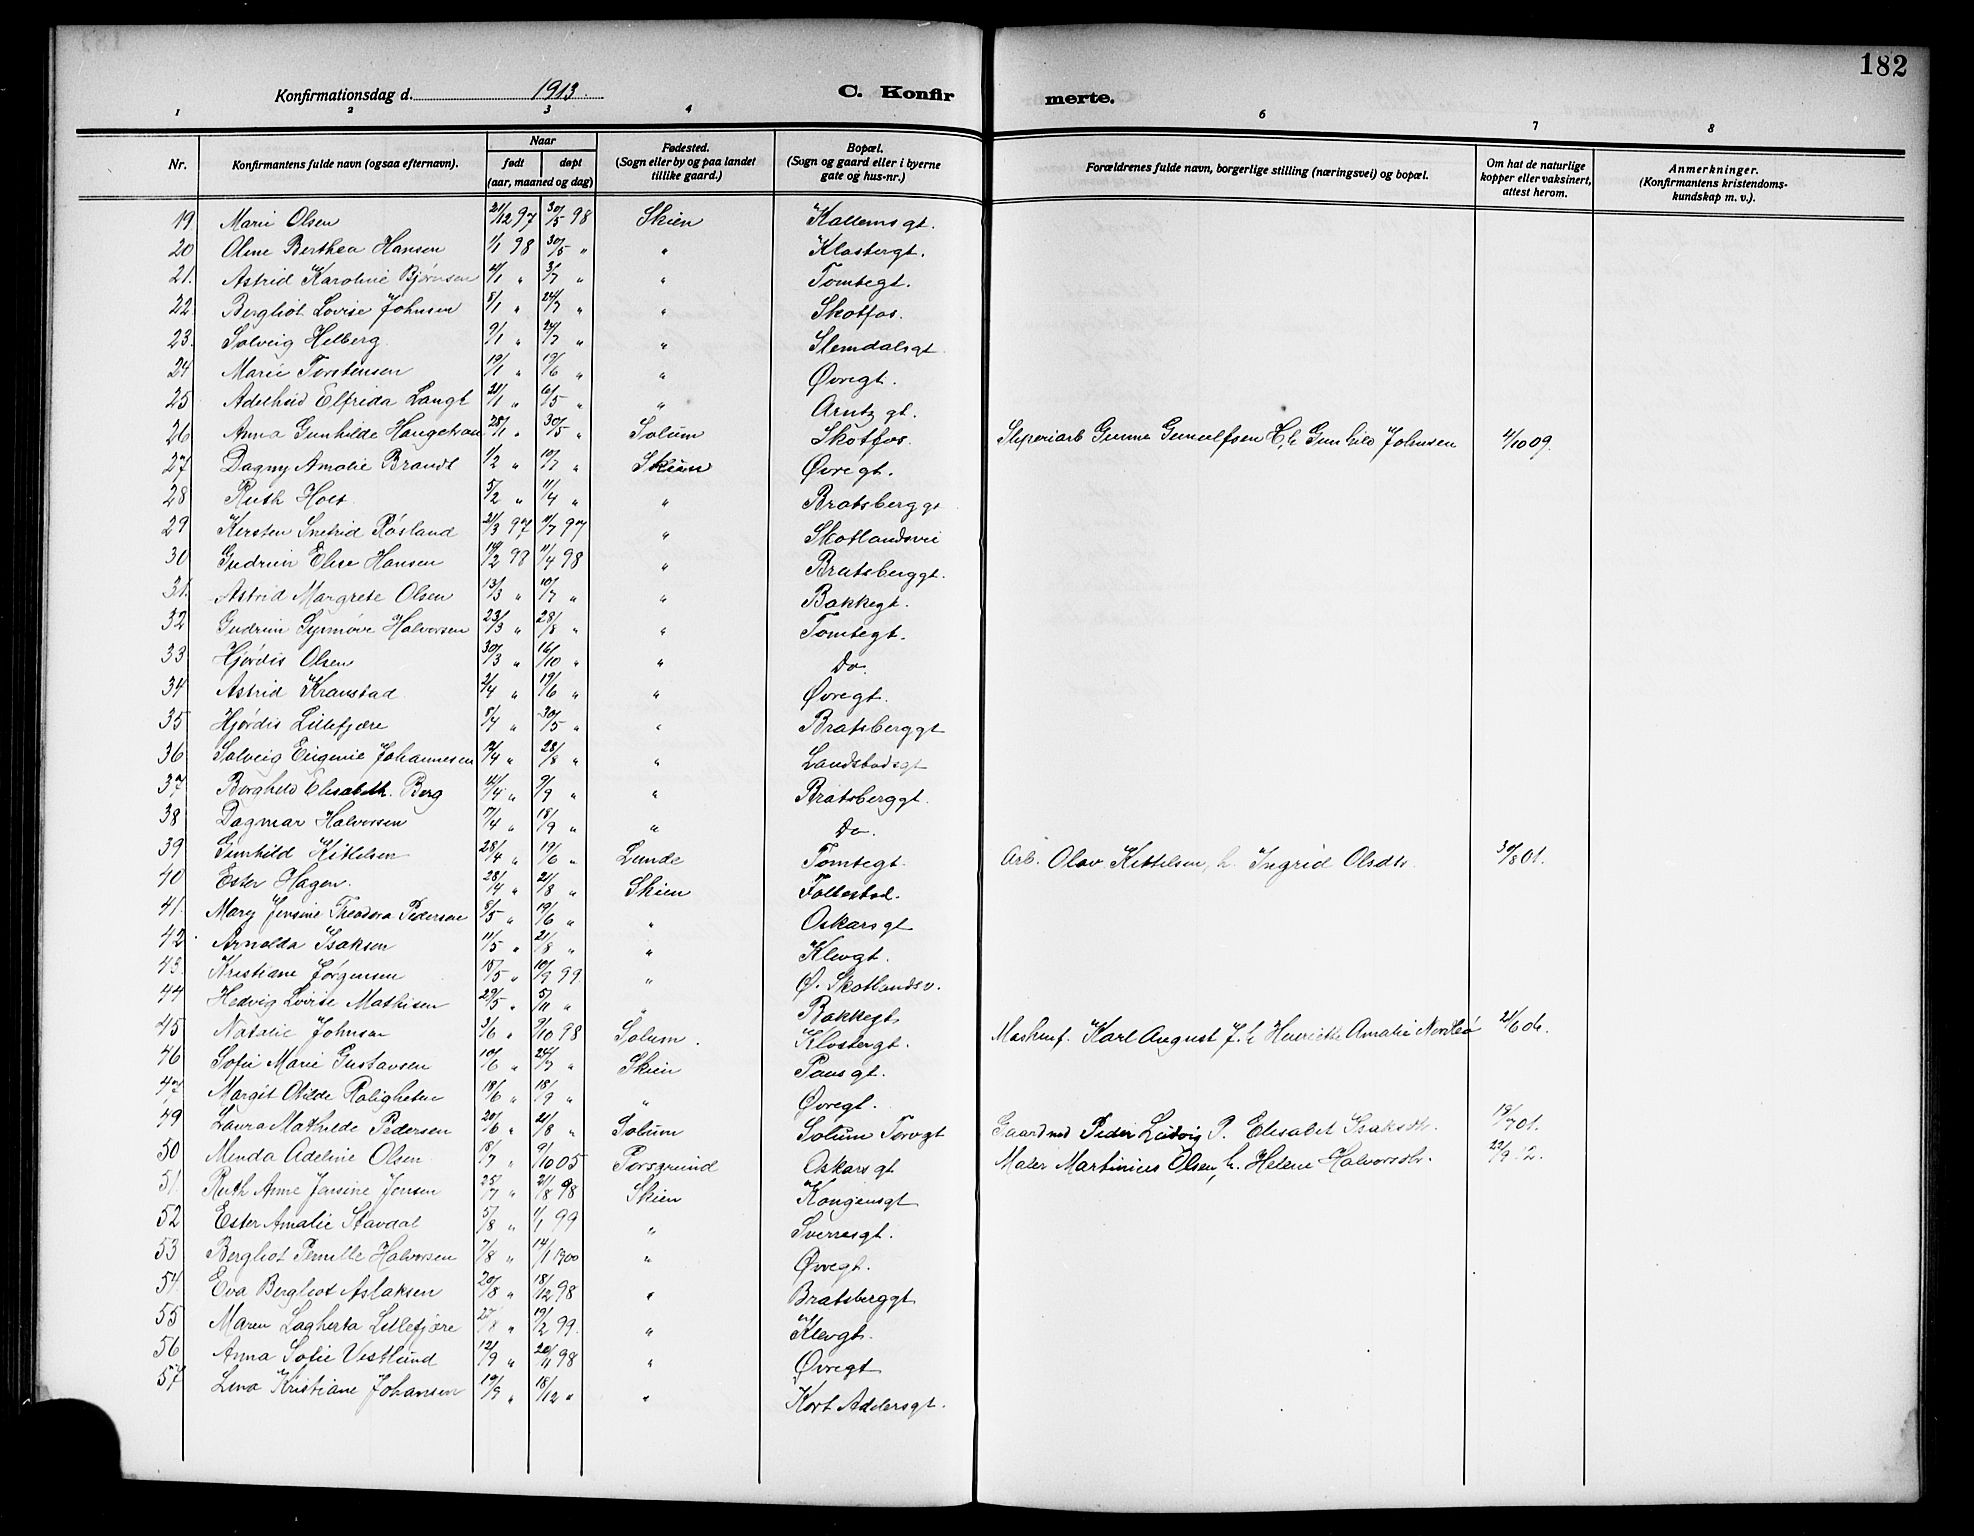 182
Konfirmationsdag d. 1913. C. Konfirmerte.
1 2 3 4 6 7 8
Nr. Konfirmantens fulde navn (ogsaa efternavn). Naar født døpt (aar, maaned og dag) Fødested. (Sogn eller by og paa landet tillike gaard.) Bopæl. (Sogn og gaard eller i byerne gate og hus-nr.) Forældrenes fulde navn, borgerlige stilling (næringsvei) og bopæl. Om hat de naturlige kopper eller vaksinert, attest herom. Anmerkninger. (Konfirmantens kristendomskundskap m. v.).
19 Marie Olsen 21/12 97 30/5 98 Skien Kallemsgt.
20 Oline Berthea Hansen 1/1 98 30/5 " " Klostergt.
21. Astrid Karoline Bjørnsen 4/1 " 3/7 " " Tomtegt.
22 Bergliot Lovise Johnsen 8/1 " 24/7 " " Skotfos.
23. Solveig Helberg 9/1 " 24/7 " " Slemdalsgt
24 Marie Torstensen 19/1 " 19/6 " " Øvregt.
25 Adelheid Elfrida Langt 21/1 " 6/5 " " Arntz gt.
26 Anna Gunhilde Haugetraa 28/1 " 30/5 " Solum Skotfos. Sliperiarb Gunne Gunulfsen H, h Gunhild Johnsen 4/10 09.
27 Dagny Amalie Brandt 1/2 " 10/7 " Skien Øvregt.
28 Ruth Holt 5/2 " 11/4 " " Bratsberggt
29 Kirsten Snefrid Røsland 21/3 97 11/7 97 " Skotlandsvei
30 Gudrun Elise Hansen 14/2 98 11/4 98 " Bratsberggt.
31. Astrid Margrete Olsen 13/3 " 10/7 " " Bakkegt.
32 Gudrun Synnøve Halvorsen 23/3 " 28/8 " " Tomtegt.
33 Hjørdis Olsen 30/3 " 16/10 " " Do.
34 Astrid Kranstad 2/4 " 19/6 " " Øvregt.
35 Hjørdis Lillefjære 8/4 " 30/5 " " Bratsberggt
36 Solveig Eugenie Johannesen 12/4 " 28/8 " " Landstadsgt
37 Borghild Elisabeth Berg 14/4 " 9/9 " " Bratsberggt.
38 Dagmar Halvorsen 17/4 " 18/9 " " Do.
39 Gunhild Kittelsen 28/4 " 19/6 " Lunde Tomtegt. Arb. Olav Kittelsen, h. Ingrid Olsdtr. 30/8 01.
40 Ester Hagen. 28/4 " 21/8 " Skien Follestad.
41. Mary Jensine Theodora Pedersen 8/5 " 19/6 " " Oskarsgt
42. Arnolda Isaksen 11/5 " 21/8 " " Klevgt.
43. Kristiane Jørgensen 18/5 " 10/9 99. " Ø. Skotlandsv.
44 Hedvig Lovise Mathisen 29/5 " 5/11 " " Bakkegt
45 Natalie Johnsen 3/6 " 9/10 98 Solum. Klostergt. Maskinf. Karl August J. h Henriette Amalie Nordbø 21/6 06.
46 Sofie Marie Gustavsen 10/6 " 24/7 " Skien Pausgt.
47. Margit Otilde Roligheten 18/6 " 18/9 " " Øvregt.
49 Laura Mathilde Pedersen 20/6 " 21/8 " Solum Solum Torvgt Gaardmd Peder Ludvig P. Elisabet Isaksdtr. 19/7 01.
50 Minda Adeline Olsen 18/7 " 9/10 05 Porsgrund Oskarsgt Maler Martinius Olsen, h. Helene Halvorsdtr. 22/9 12.
51. Ruth Anne Jensine Jensen 25/7 " 21/8 98 Skien Kongensgt
52 Ester Amalie Stavdal 5/8 " 1/1 99 " Sverresgt.
53 Bergliot Pernille Halvorsen 7/8 " 14/1 1900 " Øvregt.
54. Eva Bergliot Aslaksen 20/8 " 18/12 98 " Bratsberggt
55 Maren Lagherta Lillefjære 27/8 " 19/2 99. " Klevgt.
56 Anna Sofie Vestlund 12/9 " 20/11 98 " Øvregt
57 Lina Kristiane Johansen 19/9 " 18/12 " " Kort Addersgt.